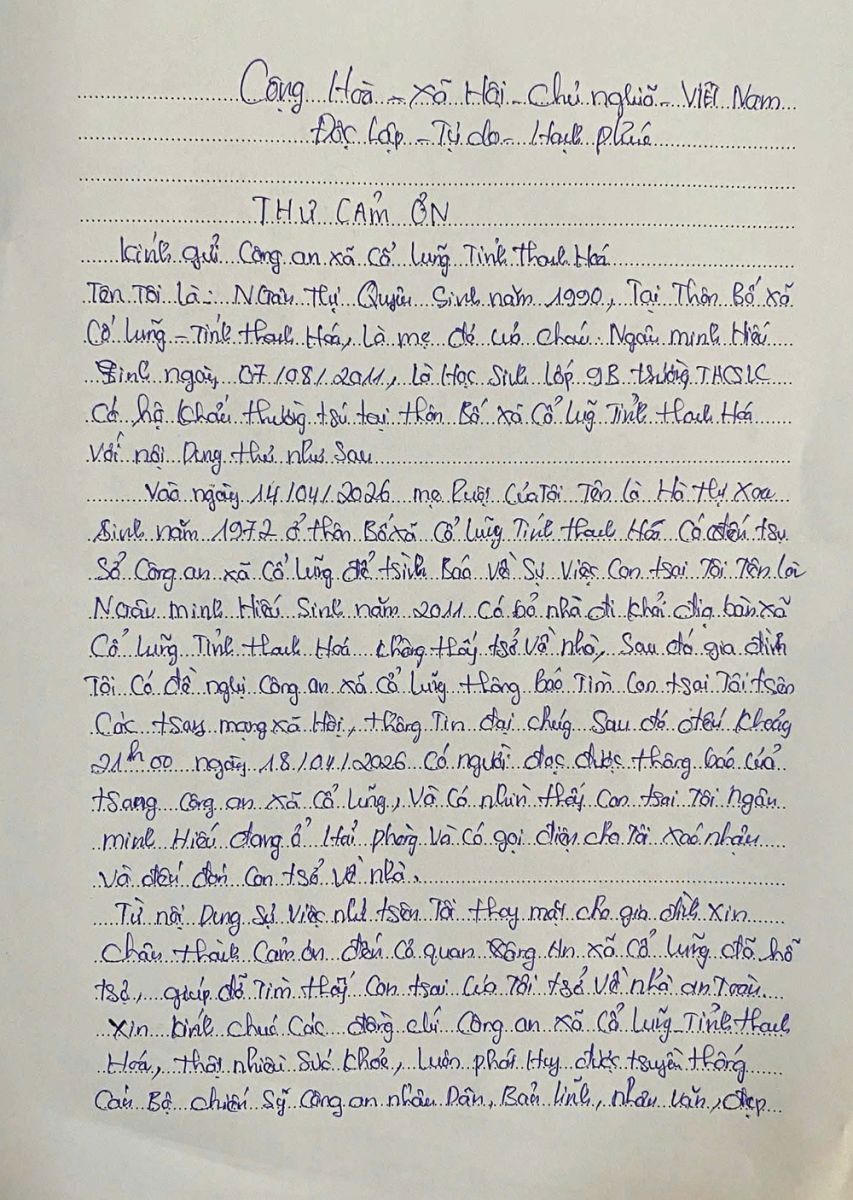 Cộng Hoà - Xã Hội - Chủ nghĩa - Việt Nam
Độc Lập - Tự do - Hạnh phúc
THƯ CẢM ƠN
Kính gửi Công an xã Cổ Lũng Tỉnh Thanh Hoá
Tên Tôi là: Ngân Thị Quyên Sinh năm 1990, Tại Thôn Bố xã
Cổ Lũng - Tỉnh Thanh Hoá, là mẹ đẻ của cháu: Ngân Minh Hiếu
Sinh ngày 07/08/2011, là Học Sinh lớp 9B trường THCSLC
Có hộ khẩu thường trú tại thôn Bố xã Cổ Lũng Tỉnh Thanh Hoá
Với nội Dung thư như Sau
Vào ngày 14/04/2026 mẹ Ruột Của Tôi Tên là Hà Thị Xoa
Sinh năm 1972 ở thôn Bố xã Cổ Lũng Tỉnh Thanh Hoá Có đến trụ
Sở Công an xã Cổ Lũng để trình Báo Về Sự Việc Con trai Tôi Tên là
Ngân Minh Hiếu Sinh năm 2011 Có bỏ nhà đi khỏi địa bàn xã
Cổ Lũng Tỉnh Thanh Hoá không thấy trở Về nhà, Sau đó gia đình
Tôi Có đề nghị Công an xã Cổ Lũng thông báo Tìm Con trai Tôi trên
Các trang mạng xã Hội, thông Tin đại chúng Sau đó đến khoảng
21h00 ngày 18/04/2026 Có người đọc được thông báo của
trang Công an xã Cổ Lũng, Và Có nhìn thấy Con trai Tôi Ngân
Minh Hiếu đang ở Hải phòng Và Có gọi điện cho Tôi xác nhận
Và đến đón Con trở Về nhà.
Từ nội Dung Sự Việc như trên Tôi thay mặt cho gia đình Xin
Chân thành Cảm ơn đến Cơ quan Công An xã Cổ Lũng đã hỗ
trợ, giúp đỡ Tìm thấy Con trai Của Tôi trở Về nhà an Toàn.
Xin kính chúc Các đồng chí Công an xã Cổ Lũng - Tỉnh Thanh
Hoá, thật nhiều Sức khỏe, Luôn phát Huy được truyền thống
Cán Bộ chiến Sỹ Công an nhân Dân, Bản lĩnh, nhân văn, đẹp